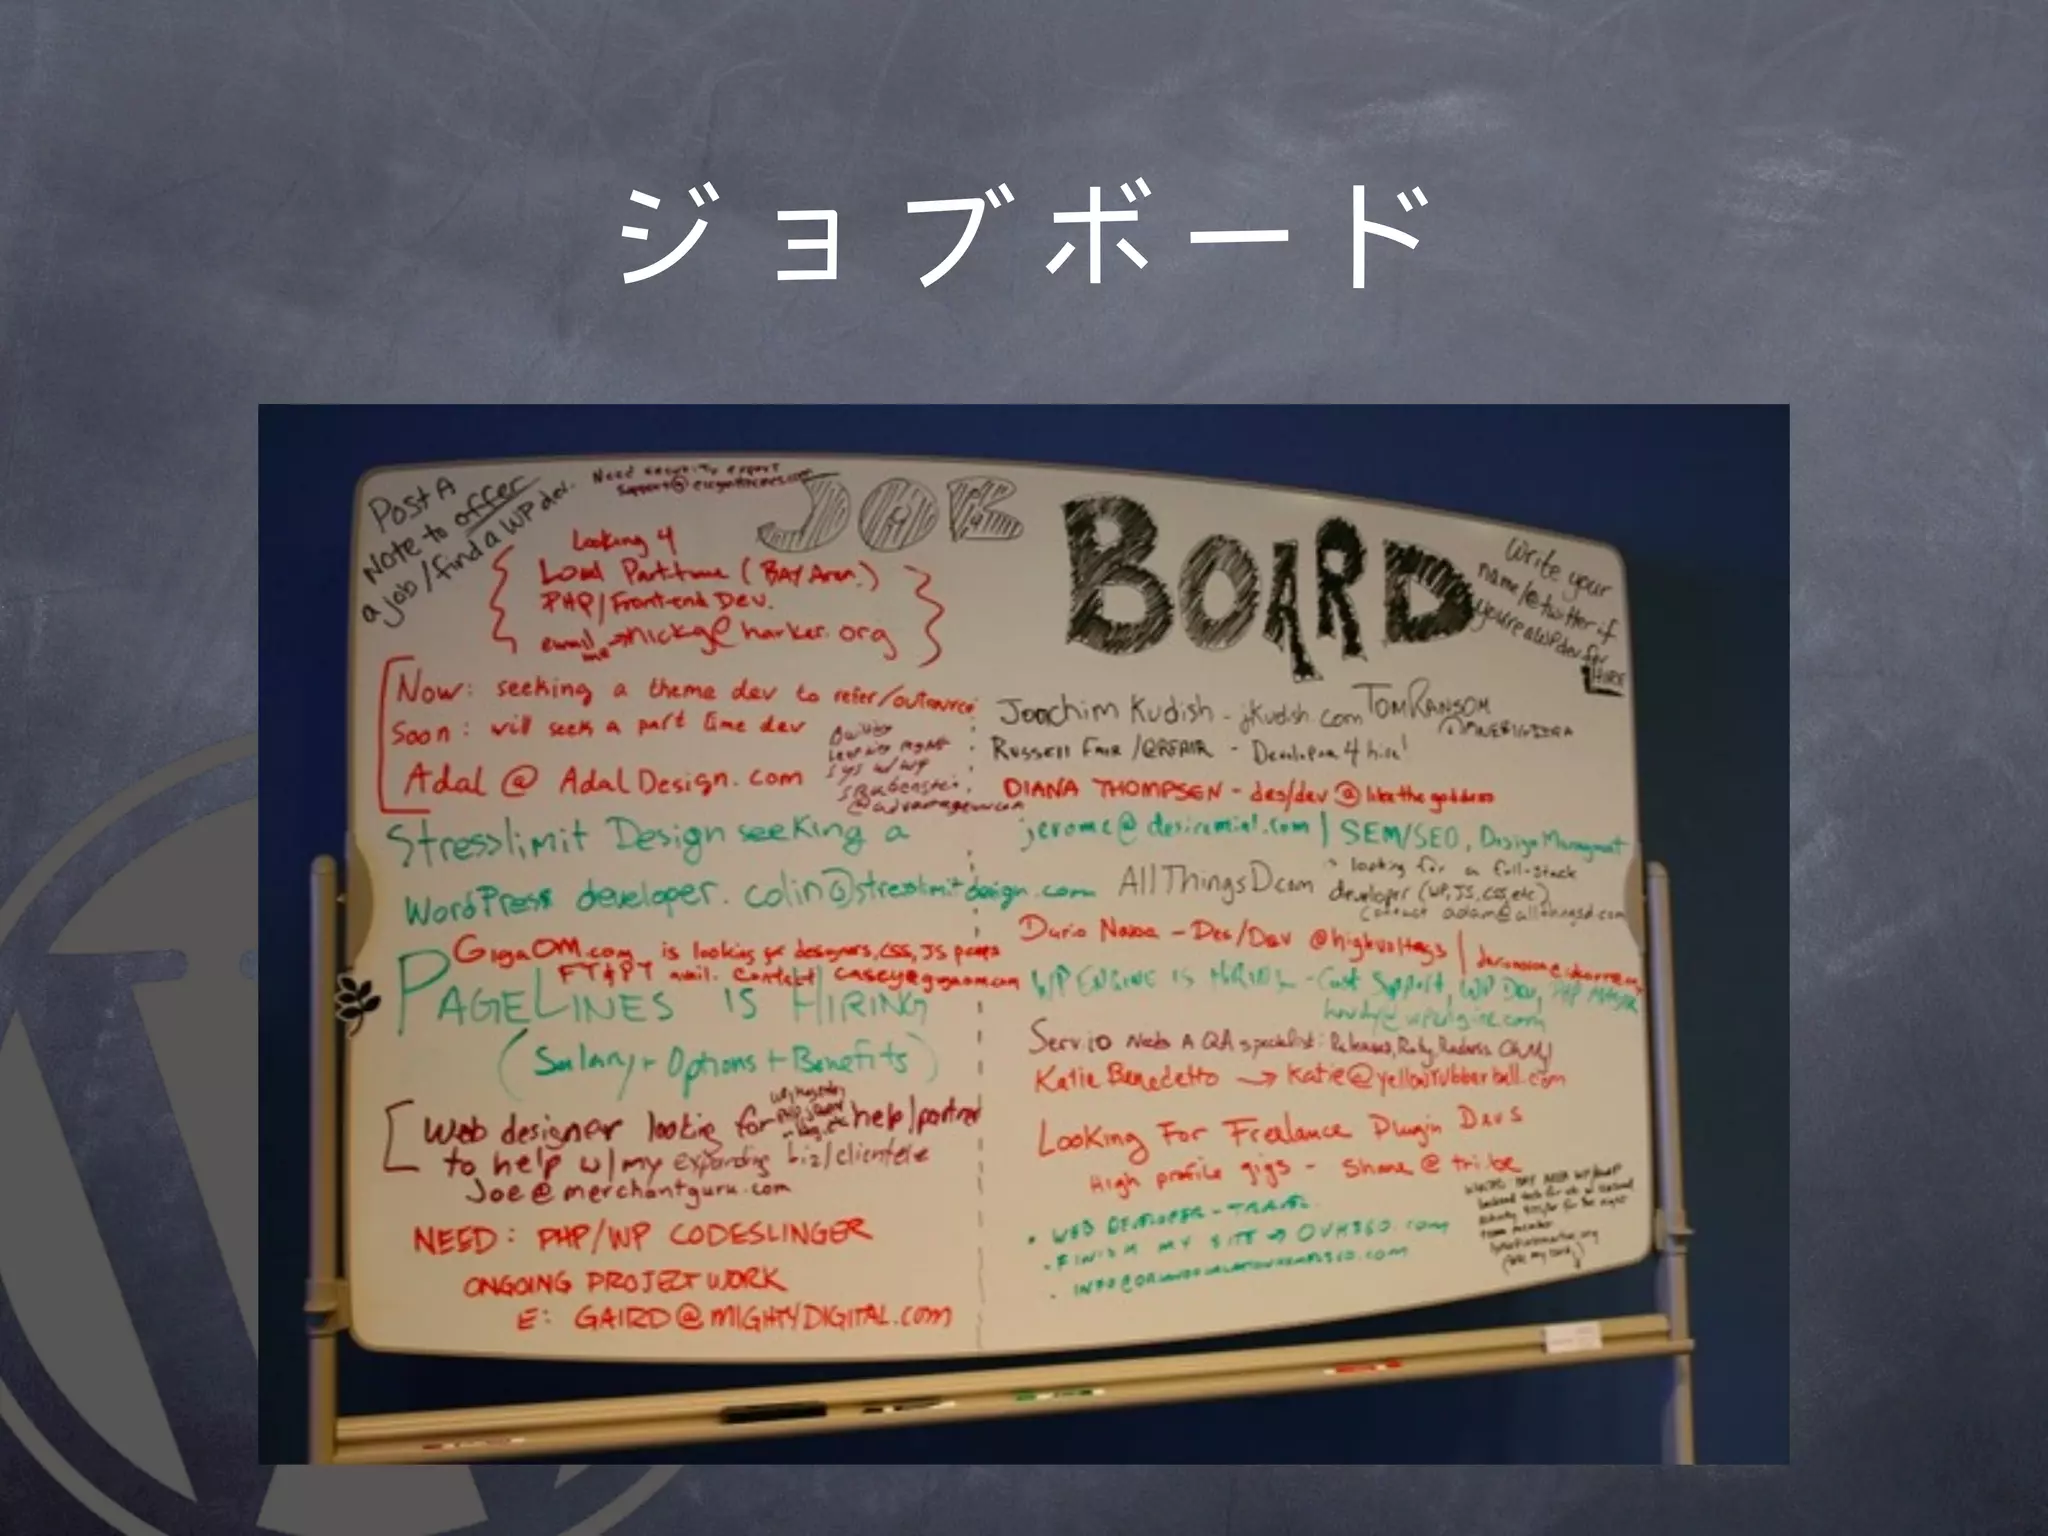 ジョブボード
Post A
Note to offer
a job / find a WP dev.
Need security expert
JOB
BOARD
Write your
name/@twitter if
you're a WP dev for
HIRE
Looking 4
Local Part-time (BAY Area.)
PHP/Front-end Dev.
email me → nickg@harker.org
Now: seeking a theme dev to refer/outsource
Soon: will seek a part time dev
Adal @ AdalDesign.com
Stresslimit Design seeking a
WordPress developer. colin@stresslimitdesign.com
GigaOM.com is looking for designers, CSS, JS
FT & PT avail. Contact casey@gigaom.com
PAGELINES IS HIRING
(Salary + Options + Benefits)
Web designer looking for help/partner
to help w/my expanding biz/clientele
Joe@merchantguru.com
NEED: PHP/WP CODESLINGER
ONGOING PROJECT WORK
E: GAIRD@MIGHTYDIGITAL.com
Joachim Kudish - jkudish.com
TOM RANSOM
Russell Fair /@RFAIR - Developer 4 hire!
DIANA THOMPSEN - des/dev @likethegoddess
| SEM/SEO, Design Management
AllThingsD.com
looking for a full-stack
developer (WP, JS, CSS, etc)
contact adam@allthingsd.com
- Des/Dev @highvoltags
WP ENGINE IS HIRING - Cust Support, WP Dev, PHP
howdy@wpengine.com
Servio Needs A QA specialist:
Katie Benedetto → katie@yellowrubberball.com
Looking For Freelance Plugin Devs
High profile gigs - Shane @ tri.be
• WEB DEVELOPER - TRAVEL
• FINISH MY SITE → OVH360.com